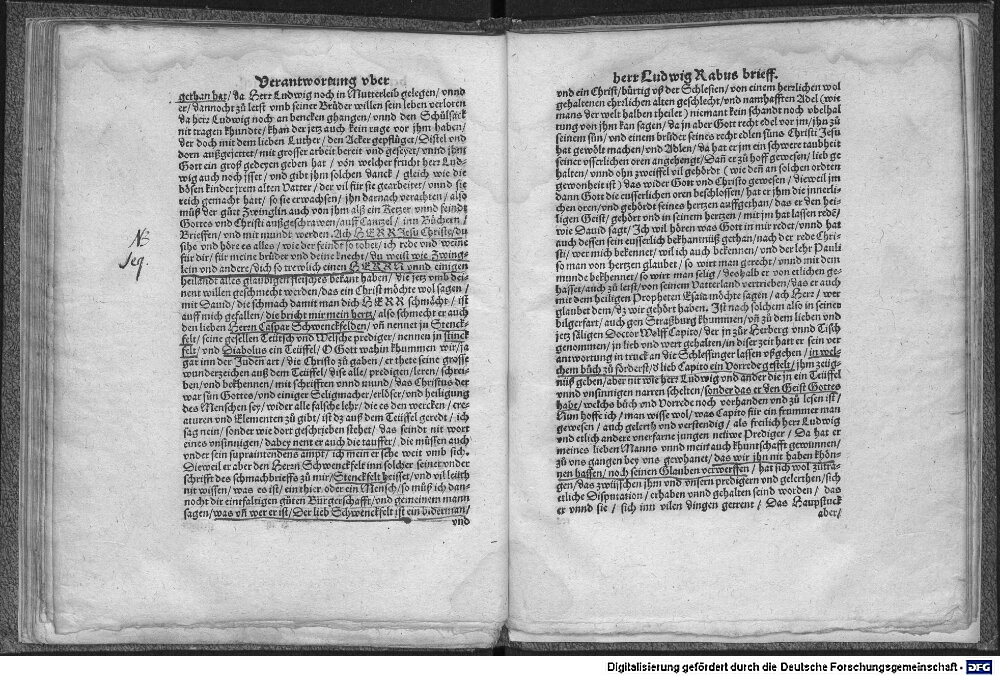 Verantwortung vber
gethan hat/ da Herr Ludwig noch in Mutterleib gelegen/ vnnd
er/ dannocht zů letst vmb seiner Brüder willen sein leben verloren
da herr Ludwig noch an bencken ghangen/ vnnd den Schůlsack
nit tragen khundte/ khan der jetz auch kein růge vor jhm haben/
der doch mit dem lieben Luther/ den Acker gepflüget/ Distel vnd
dorn außgejettet/ mit grosser arbeit bereit vnd geseyet/ vnnd jhm
Gott ein groß gedeyen geben hat/ von welcher frucht herr Lud-
wig auch noch jsset/ vnd gibt jhm solchen danck/ gleich wie die
bösen kinder jrem alten Vatter/ der vil für sie gearbeitet/ vnnd sie
reich gemacht hatt/ so sie erwachsen/ jhn darnach verachten/ also
můß der gůt Zwinglin auch von jhm alß ein Ketzer vnnd feindt
Gottes vnd Christi außgeschrawen/ auff Cantzel/ inn Büchern/
Brieffen/ vnd mit mundt werden. Ach HERR Jesu Christe/ du
sihe vnd höre es alles/ wie der feindt so tobet/ ich rede vnd weine
für dir/ für meine brůder vnd deine knecht/ du weist wie Zwing-
lein vnd andere/ dich so trewlich einen HERRN vnnd einigen
heilandt alles glaubigen fleisches bekant haben/ die jetz vmb dei-
nent willen geschmecht werden/ das ein Christ möchte wol sagen/
mit Dauid/ die schmach damit man dich HERR schmächt/ ist
auff mich gefallen/ die bricht mir mein hertz/ also schmecht er auch
den lieben Herrn Caspar Schwenckfelden/ vñ nennet jn Stenck-
felt/ seine gesellen Teütsch vnd Welsche prediger/ nennen jn stinck
felt/ vnd Diabolus ein Teüffel/ O Gott wahin khummen wir/ ja
gar inn der Juden art/ die Christo zů gaben/ er thete seine grosse
wunderzeichen auß dem Teüffel/ dise alle/ predigen/ leren/ schrei-
ben/ vnd bekhennen/ mit schrifften vnnd mund/ das Christus der
war sůn Gottes/ vnd einiger Seligmacher/ erlöser/ vnd heiligung
des Menschen sey/ wider alle falsche lehr/ die es den wercken/ cre-
aturen vnd Elementen zů gibt/ ist dz auß dem Teüffel geredt/ ich
sag nein/ sonder wie dort geschriben stehet/ das seindt nit wort
eines vnsinnigen/ dabey nent er auch die tauffer/ die müssen auch
vnder sein supraintendens ampt/ ich mein er sche weit vmb sich.
Dieweil er aber den Herrn Schwenckfelt inn solcher seiner vnder
schrifft des schmachbrieffs zů mir/ Stenckfelt heisset/ vnd vil leüth
nit wissen/ was es ist/ ein thier oder ein Mensch/ so můß ich dan-
nocht dir einfaltigen gůten Burgerschafft/ vnd gemeinem mann
sagen/ was vñ wer er ist/ Der lieb Schwenckfelt ist ein biderman/
vnd
NB
seq.
herr Ludwig Rabus brieff.
vnd ein Christ/ bürtig vß der Schlesien/ von einem herrlichen wol
gehaltenen ehrlichen alten geschlecht/ vnd namhafften Adel (wie
mans der welt halben theilet) niemant kein schandt noch vbelhal
tung von jhm kan sagen/ da jn aber Gott recht edel vor jm/ jhn zů
seinem sůn/ vnd einem brůder seines recht edlen sůns Christi Jesu
hat gewölt machen/ vnd Adlen/ da hat er jm ein schwere taubheit
seiner vsserlichen oren angehengt/ Dañ er zů hoff gewesen/ lieb ge
halten/ vnnd ohn zweiffel vil gehördt (wie deñ an solchen ordten
gewonheit ist) das wider Gott vnd Christo gewesen/ dieweil jm
dann Gott die eusserlichen oren beschlossen/ hat er jhm die innerli-
chen oren/ vnd gehördt seines hertzen auffgethan/ das er den hei-
ligen Geist/ gehört vnd in seinem hertzen/ mit jm hat lassen rede/
wie Dauid sagt/ Ich wil hören was Gott in mir redet/ vnnd hat
auch dessen sein eusserlich bekhantnuß gethan/ nach der rede Chris
ti/ wer mich bekennet/ wil ich auch bekennen/ vnd der lehr Pauli
so man von hertzen glaubet/ so wirt man gerecht/ vnnd mit dem
munde bekhennet/ so wirt man selig/ deshalb er von etlichen ge-
hasset/ auch zů letst/ von seinem Vatterland vertrieben/ das er auch
mit dem heiligen Propheten Esaia möchte sagen/ ach Herr/ wer
glaubet dem/ dz wir gehört haben. Ist nach solchem also in seiner
bilgerfart/ auch gen Straßburg khummen/ vñ zů dem lieben vnd
jetz säligen Doctor Wolff Capito/ der jn zůr Herberg vnnd Tisch
genommen/ jn lieb vnd wert gehalten/ in diser zeit hatt er sein ver
antwortung in truck an die Schlessinger lassen vßgehen/ in wel-
chem bůch zů förderst/ d lieb Capito ein Vorrede gestelt/ jhm zeüg-
nüß geben/ aber nit wie herr Ludwig vnd ander die jn ein Teüffel
vnnd vnsinnigen narren schelten/ sonder das er den Geist Gottes
habe/ welchs bůch vnd Vorrede noch verhanden vnd zů lesen ist/
Nun hoffe ich/ man wisse wol/ was Capito für ein frummer man
gewesen/ auch gelerth vnd verstendig/ als freilich herr Ludwig
vnd etlich andere vnerfarne jungen neüwe Prediger/ Da hat er
meines lieben Manns vnnd mein auch khuntschafft gewunnen/
zů vns gangen bey vns gewhanet/ das wir jhn nit haben khön-
nen hassen/ noch seinen Glauben verwerffen/ hat sich wol zůtra-
gen/ das zwüsschen jhm vnd vnsern predigern vnd gelerthen/ sich
etliche Disputation/ erhaben vnnd gehalten seind worden/ das
er vnnd sie/ sich inn vilen dingen getrent/ Das Hauptstuck
aber/
Digitalisierung gefördert durch die Deutsche Forschungsgemeinschaft - DFG